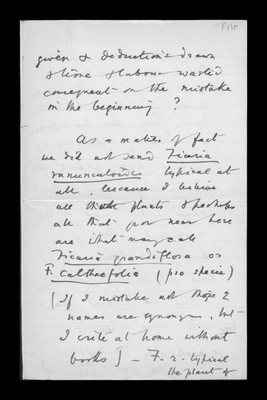 given & deductions drawn
& time & labour wasted
consequent on the mistake
in the beginning ?
As a matter of fact
we did not send Ficaria
ranunculoides typical at
all, because I believe
all the plants & herbs
all that grow near here
are what may call
Ficaria grandiflora or
F. calthaefolia (pro specie)
[If I mistake not those 2
names are synonyms, but
I write at home without
books] — F. r. typical
the plant of